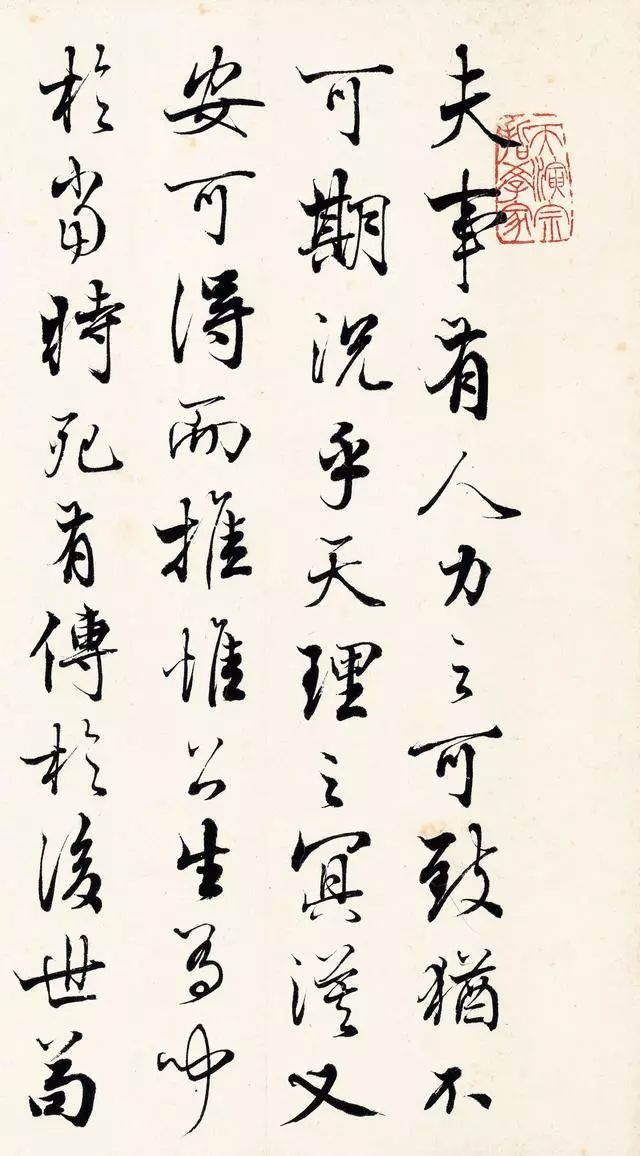 天演宗
哲學家
夫事有人力之可致猶不
可期況乎天理之冥漠又
安可得而推惟公生有聞
於當時死有傳於後世苟